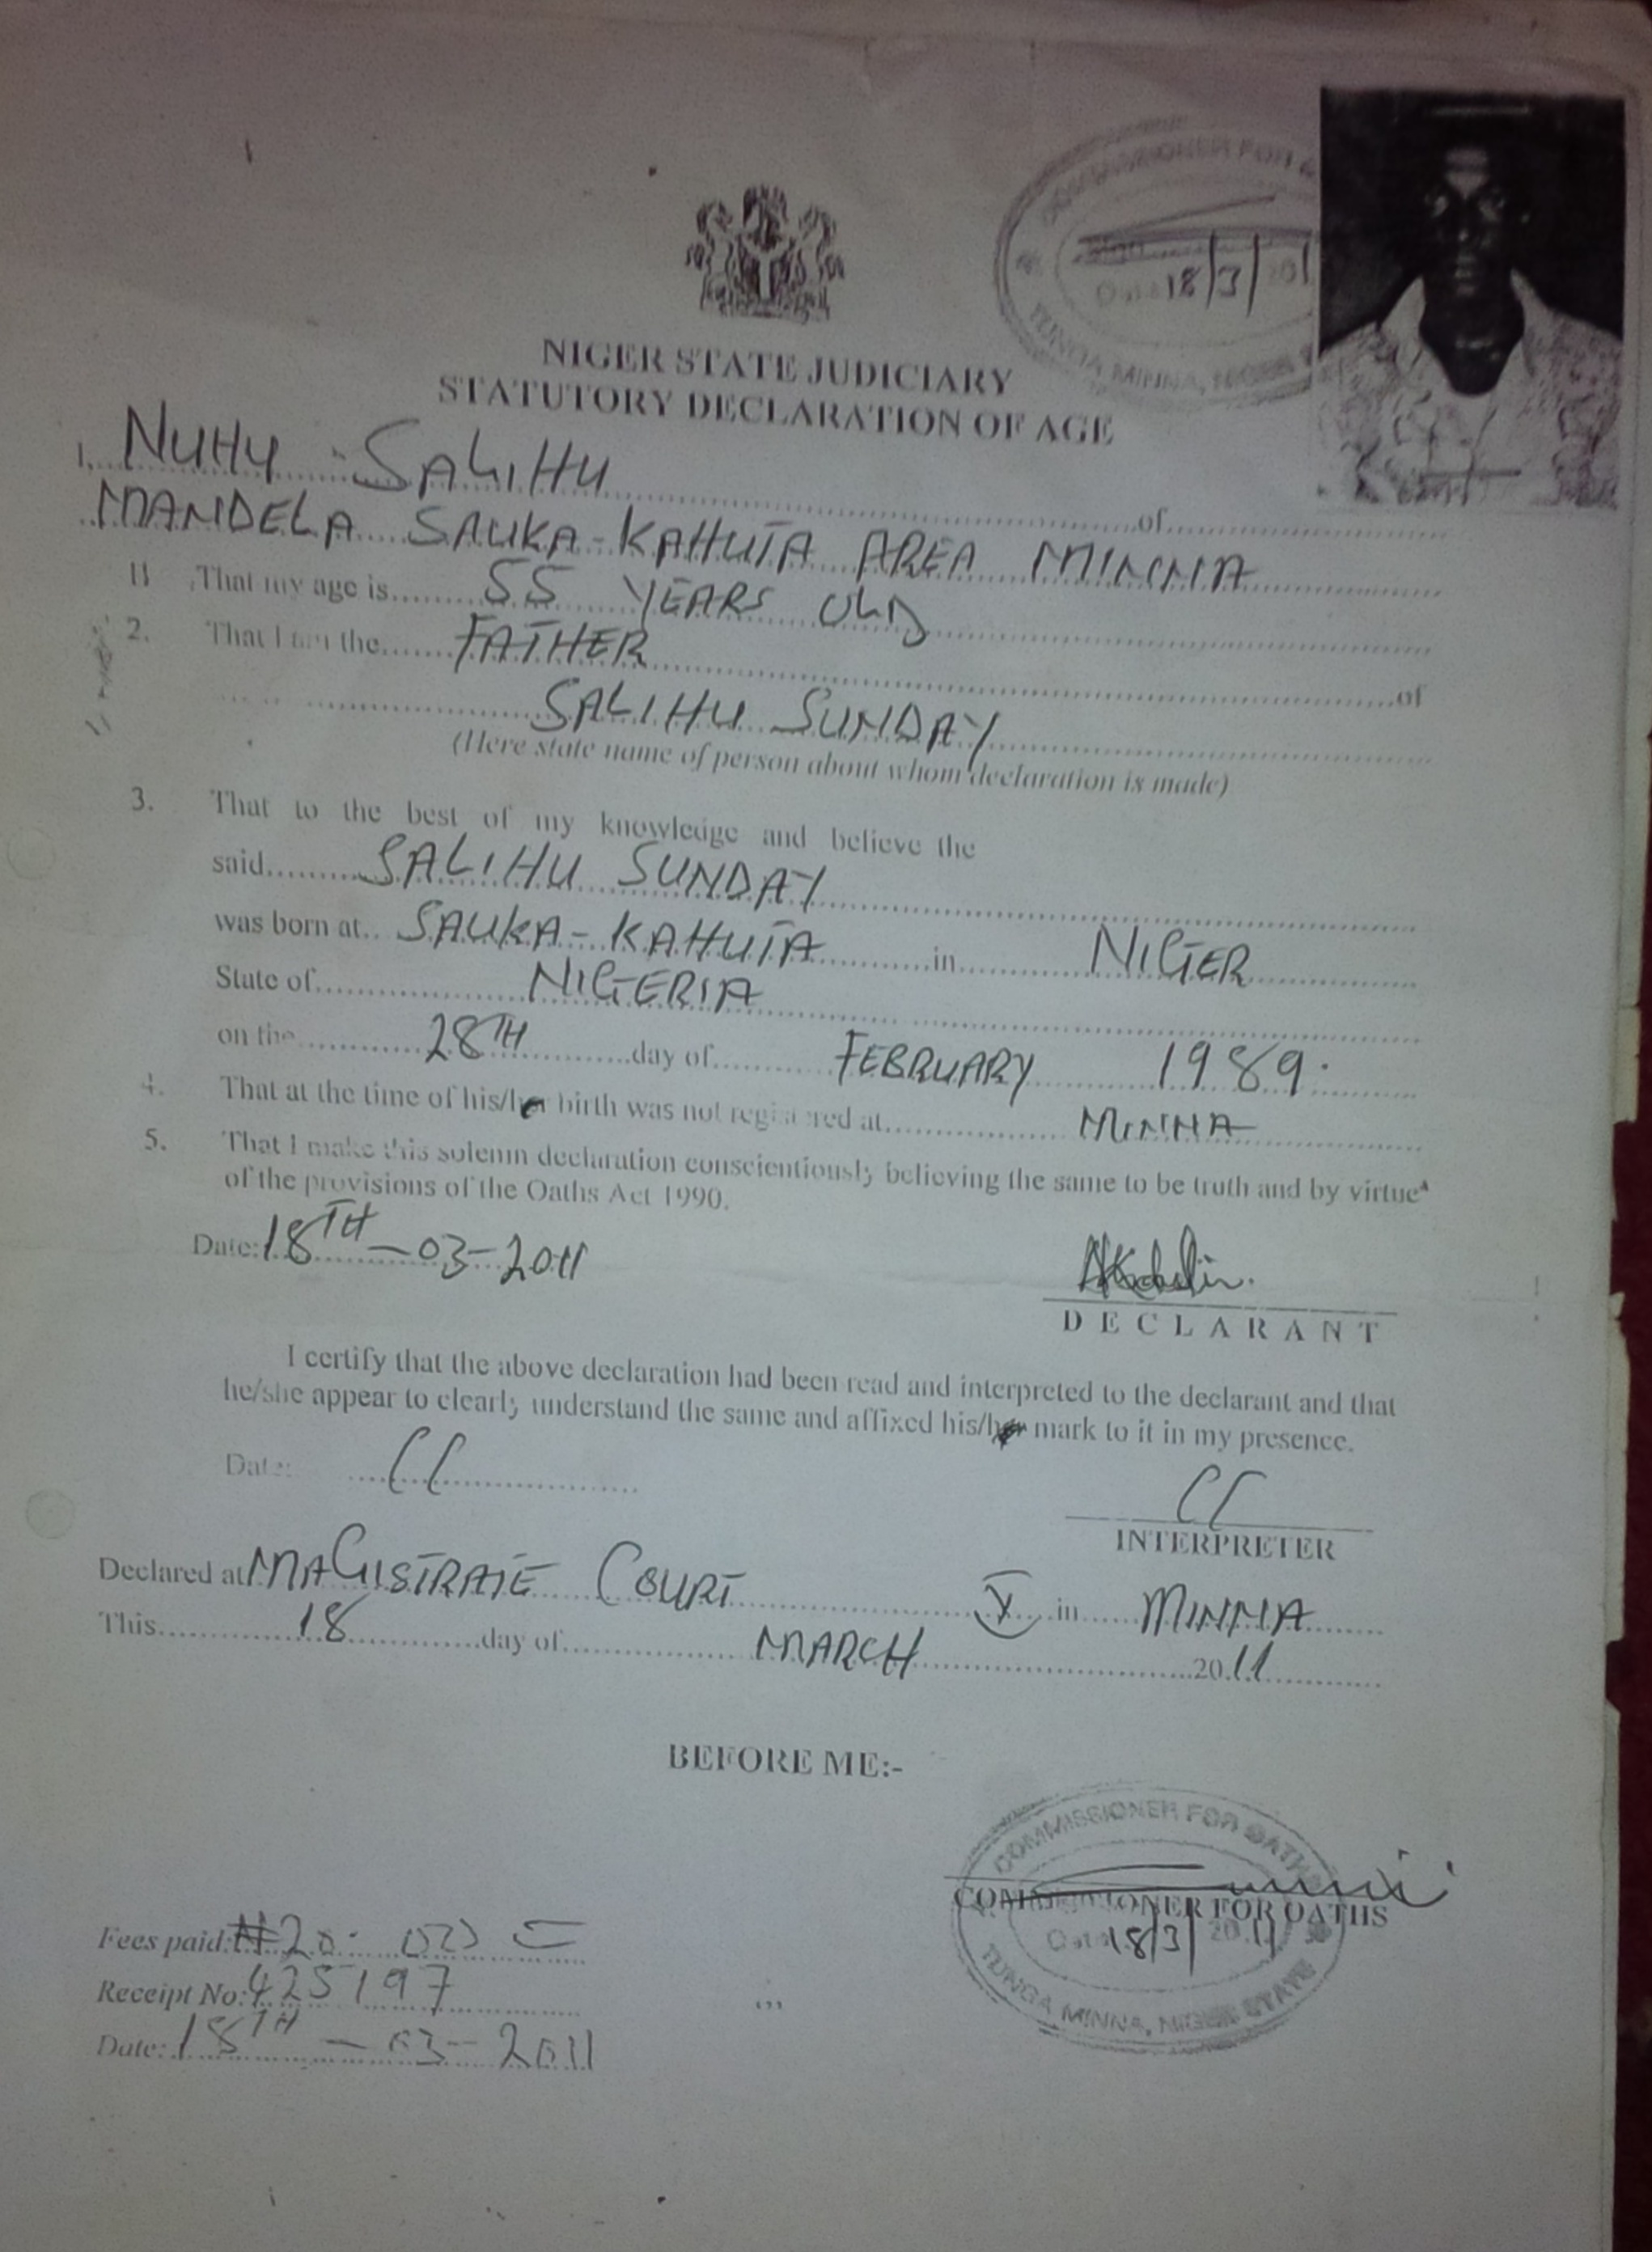 COMMISSIONER FOR
Date 18/3/201
TUNGA MINNA, NIGER
NIGER STATE JUDICIARY
STATUTORY DECLARATION OF AGE
I, NUHU SALIHU of
MANDELA SAUKA-KAHUTA AREA MINNA
11 That my age is 55 YEARS OLD
2. That I am the FATHER of
SALIHU SUNDAY
(Here state name of person about whom declaration is made)
3. That to the best of my knowledge and believe the
said SALIHU SUNDAY
was born at SAUKA-KAHUTA in NIGER
State of NIGERIA
on the 28TH day of FEBRUARY 1989.
4. That at the time of his/her birth was not registered at MINNA
5. That I make this solemn declaration conscientiously believing the same to be truth and by virtue
of the provisions of the Oaths Act 1990.
Date: 18TH-03-2011
DECLARANT
I certify that the above declaration had been read and interpreted to the declarant and that
he/she appear to clearly understand the same and affixed his/her mark to it in my presence.
Date:
INTERPRETER
Declared at MAGISTRATE COURT V in MINNA
This 18 day of MARCH 2011
BEFORE ME:-
COMMISSIONER FOR OATHS
COMMISSIONER FOR OATHS
Date 18/3/2011
TUNGA MINNA, NIGER STATE
Fees paid: ₦20.00
Receipt No: 425197
Date: 18TH-03-2011